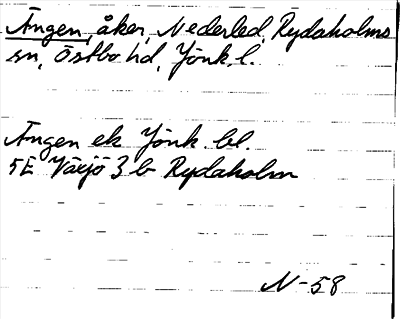 Ängen, åker, Nederled, Rydaholms
sn, Östbo hd, Jönk. l.
Ängen ek Jönk. bl.
5E Växjö 3 b Rydaholm
N-58